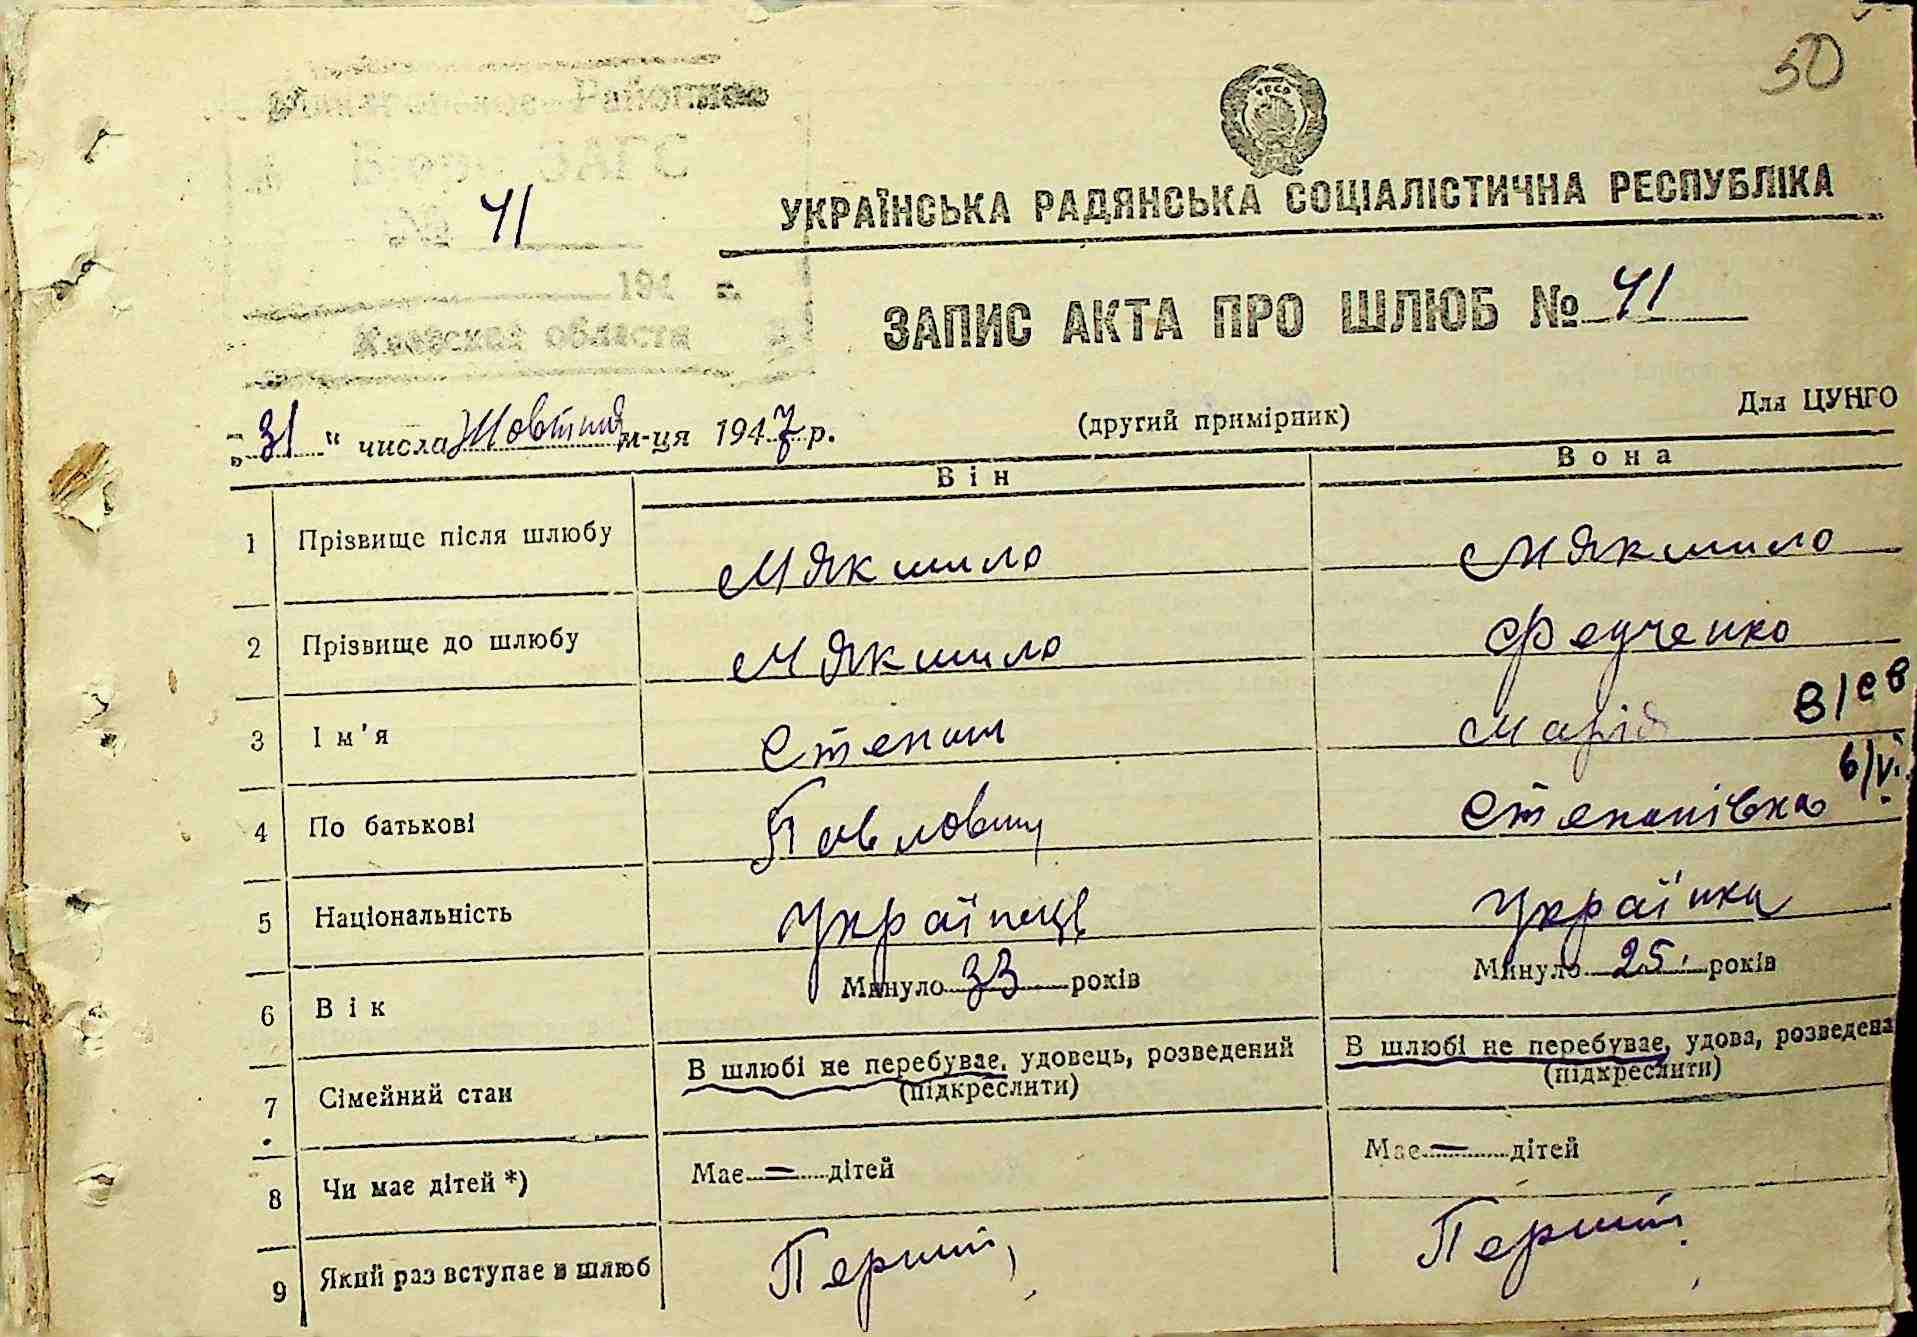 50
Районное
Бюро ЗАГС
№ 41
194 г.
Киевская области
УКРАЇНСЬКА РАДЯНСЬКА СОЦІАЛІСТИЧНА РЕСПУБЛІКА
ЗАПИС АКТА ПРО ШЛЮБ № 41
„31“ числа Жовтня м-ця 1947 р.
(другий примірник)
Для ЦУНГО
Він Вона
1 Прізвище після шлюбу Мякшило Мякшило
2 Прізвище до шлюбу Мякшило Федченко
3 Ім'я Степан Марія
В/св
6/VI.
4 По батькові Павлович Степанівна
5 Національність Українець Українка
6 Вік Минуло 33 років Минуло 25. років
7 Сімейний стан В шлюбі не перебуває, удовець, розведений В шлюбі не перебуває, удова, розведена
(підкреслити) (підкреслити)
8 Чи має дітей *) Має — дітей Має — дітей
9 Який раз вступає в шлюб Перший Перший